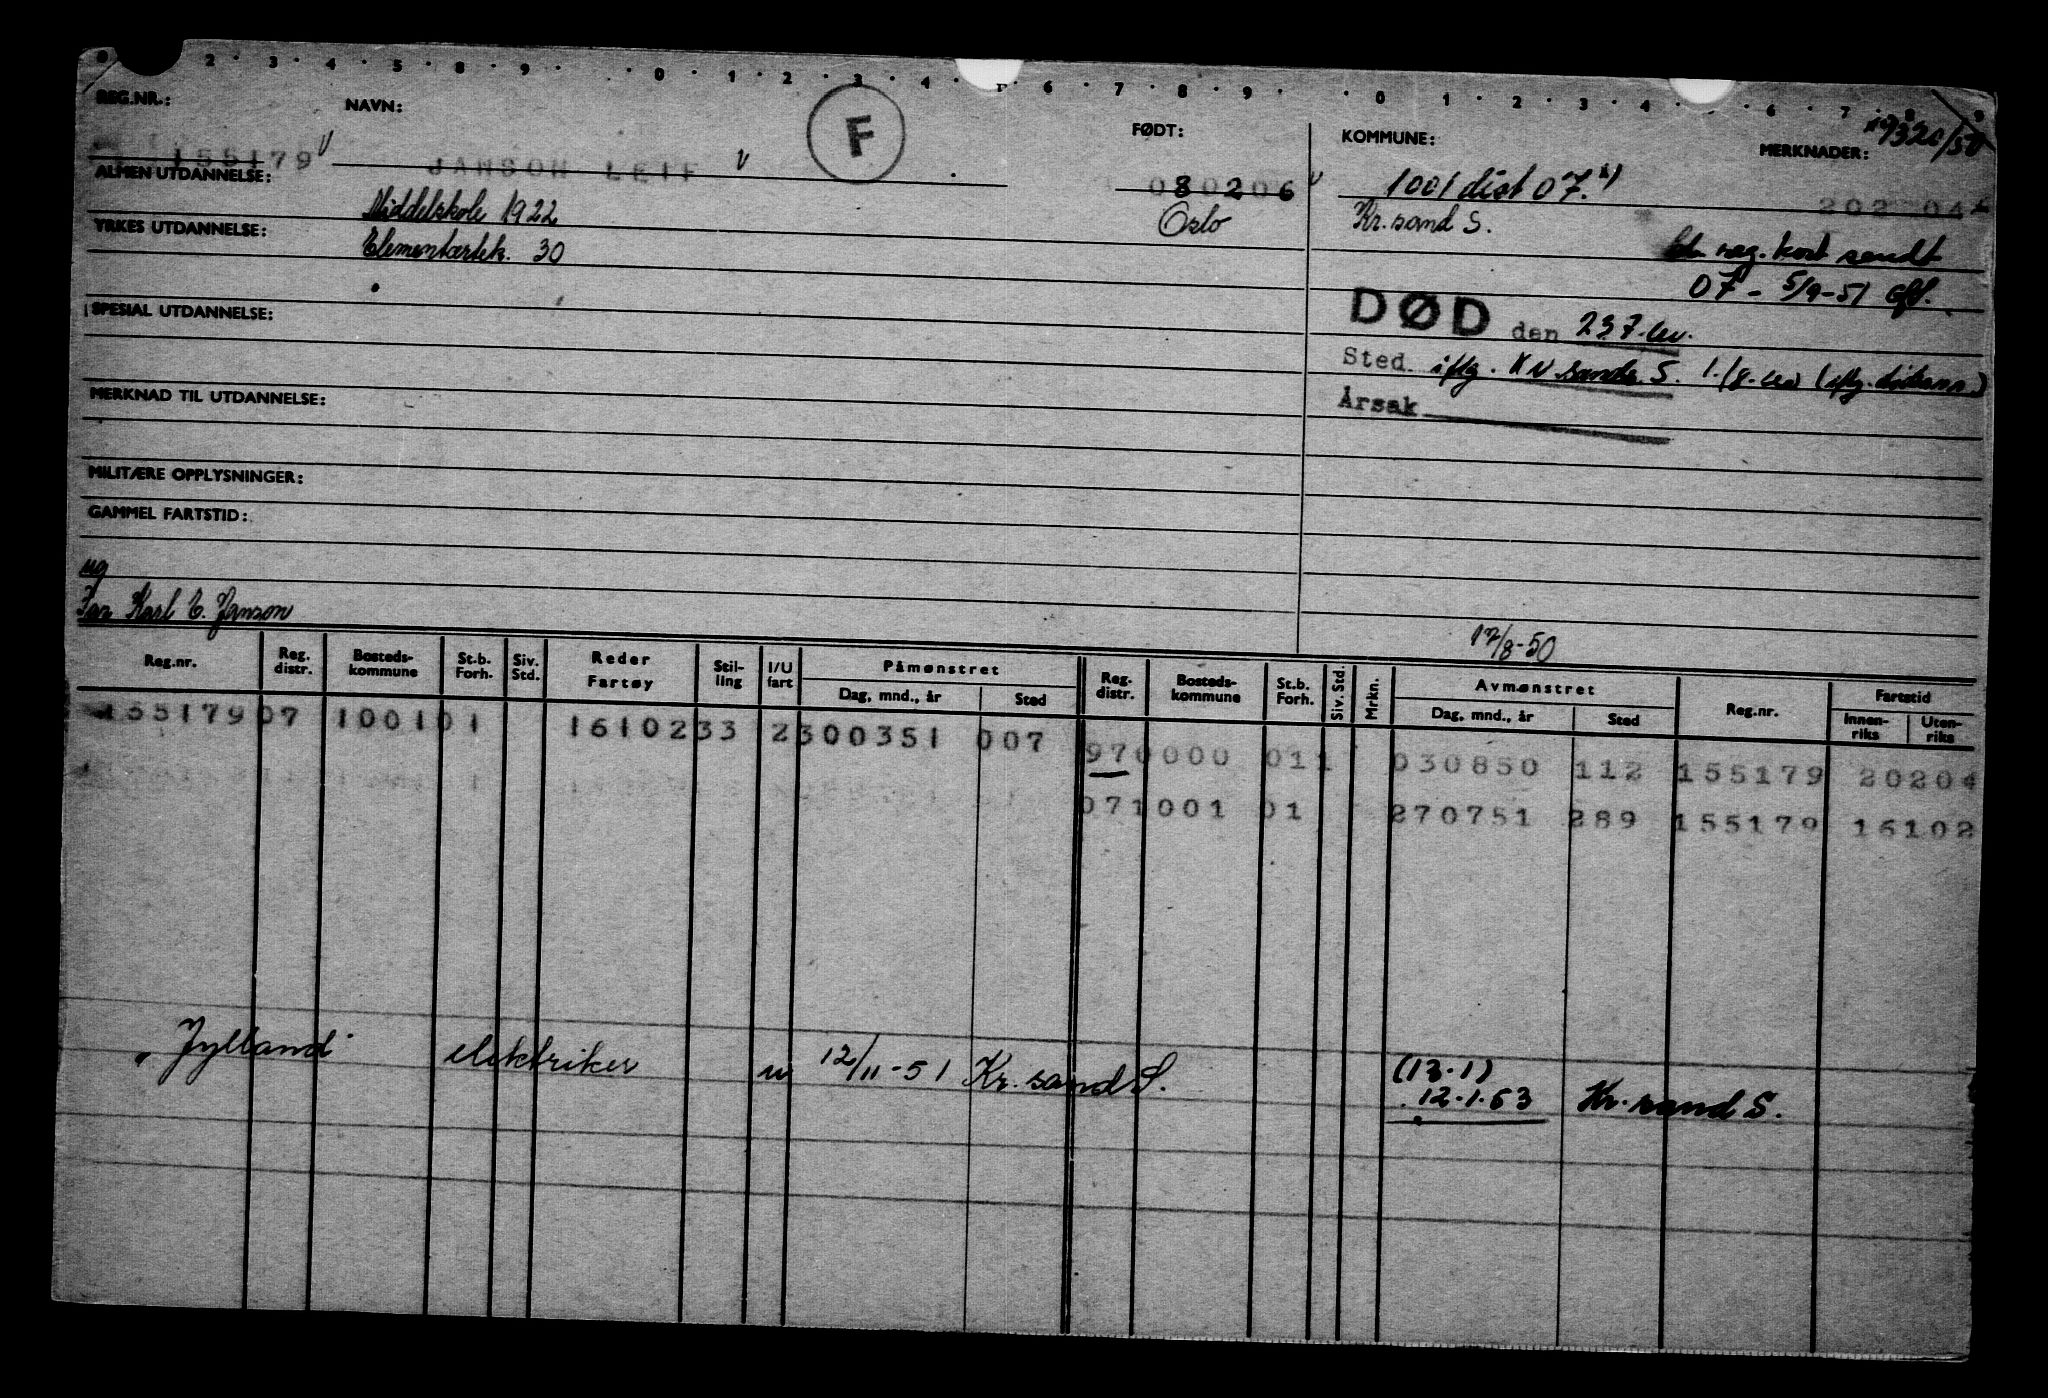 0 2 3 4 5 8 9 0 1 2 3 4 6 7 8 9 0 1 2 3 4 6 7 8 9
REG.NR.:
NAVN:
F
FØDT:
KOMMUNE:
MERKNADER:
155179
JANSON LEIF
080206
1001 dist 07. x)
ALMEN UTDANNELSE:
Middelskole 1922
Oslo
Kr.sand S.
YRKES UTDANNELSE:
Elementærtek. 30
reg. kort sendt
07 - 5/9-51
SPESIAL UTDANNELSE:
DØD den
Sted iflg.
MERKNAD TIL UTDANNELSE:
Årsak
MILITÆRE OPPLYSNINGER:
GAMMEL FARTSTID:
ug
Far Karl E. Janson
17/8-50
Reg.nr. Reg. distr. Bosteds-kommune St.b. Forh. Siv. Std. Reder Fartøy Stil-ling I/U fart Påmønstret Dag, mnd., år Sted Reg. distr. Bosteds-kommune St.b. Forh. Siv. Std. Mrkn. Avmønstret Dag, mnd., år Sted Reg.nr. Fartstid Innen-riks Uten-riks
155179 07 1001 01 16102 33 2 300351 007
97 0000 011 030850 112 155179 20204
07 1001 01 270751 289 155179 16102
"Jylland" elektriker u 12/11-51 Kr.sand S.
(13.1)
12.1.53 Kr.sand S.